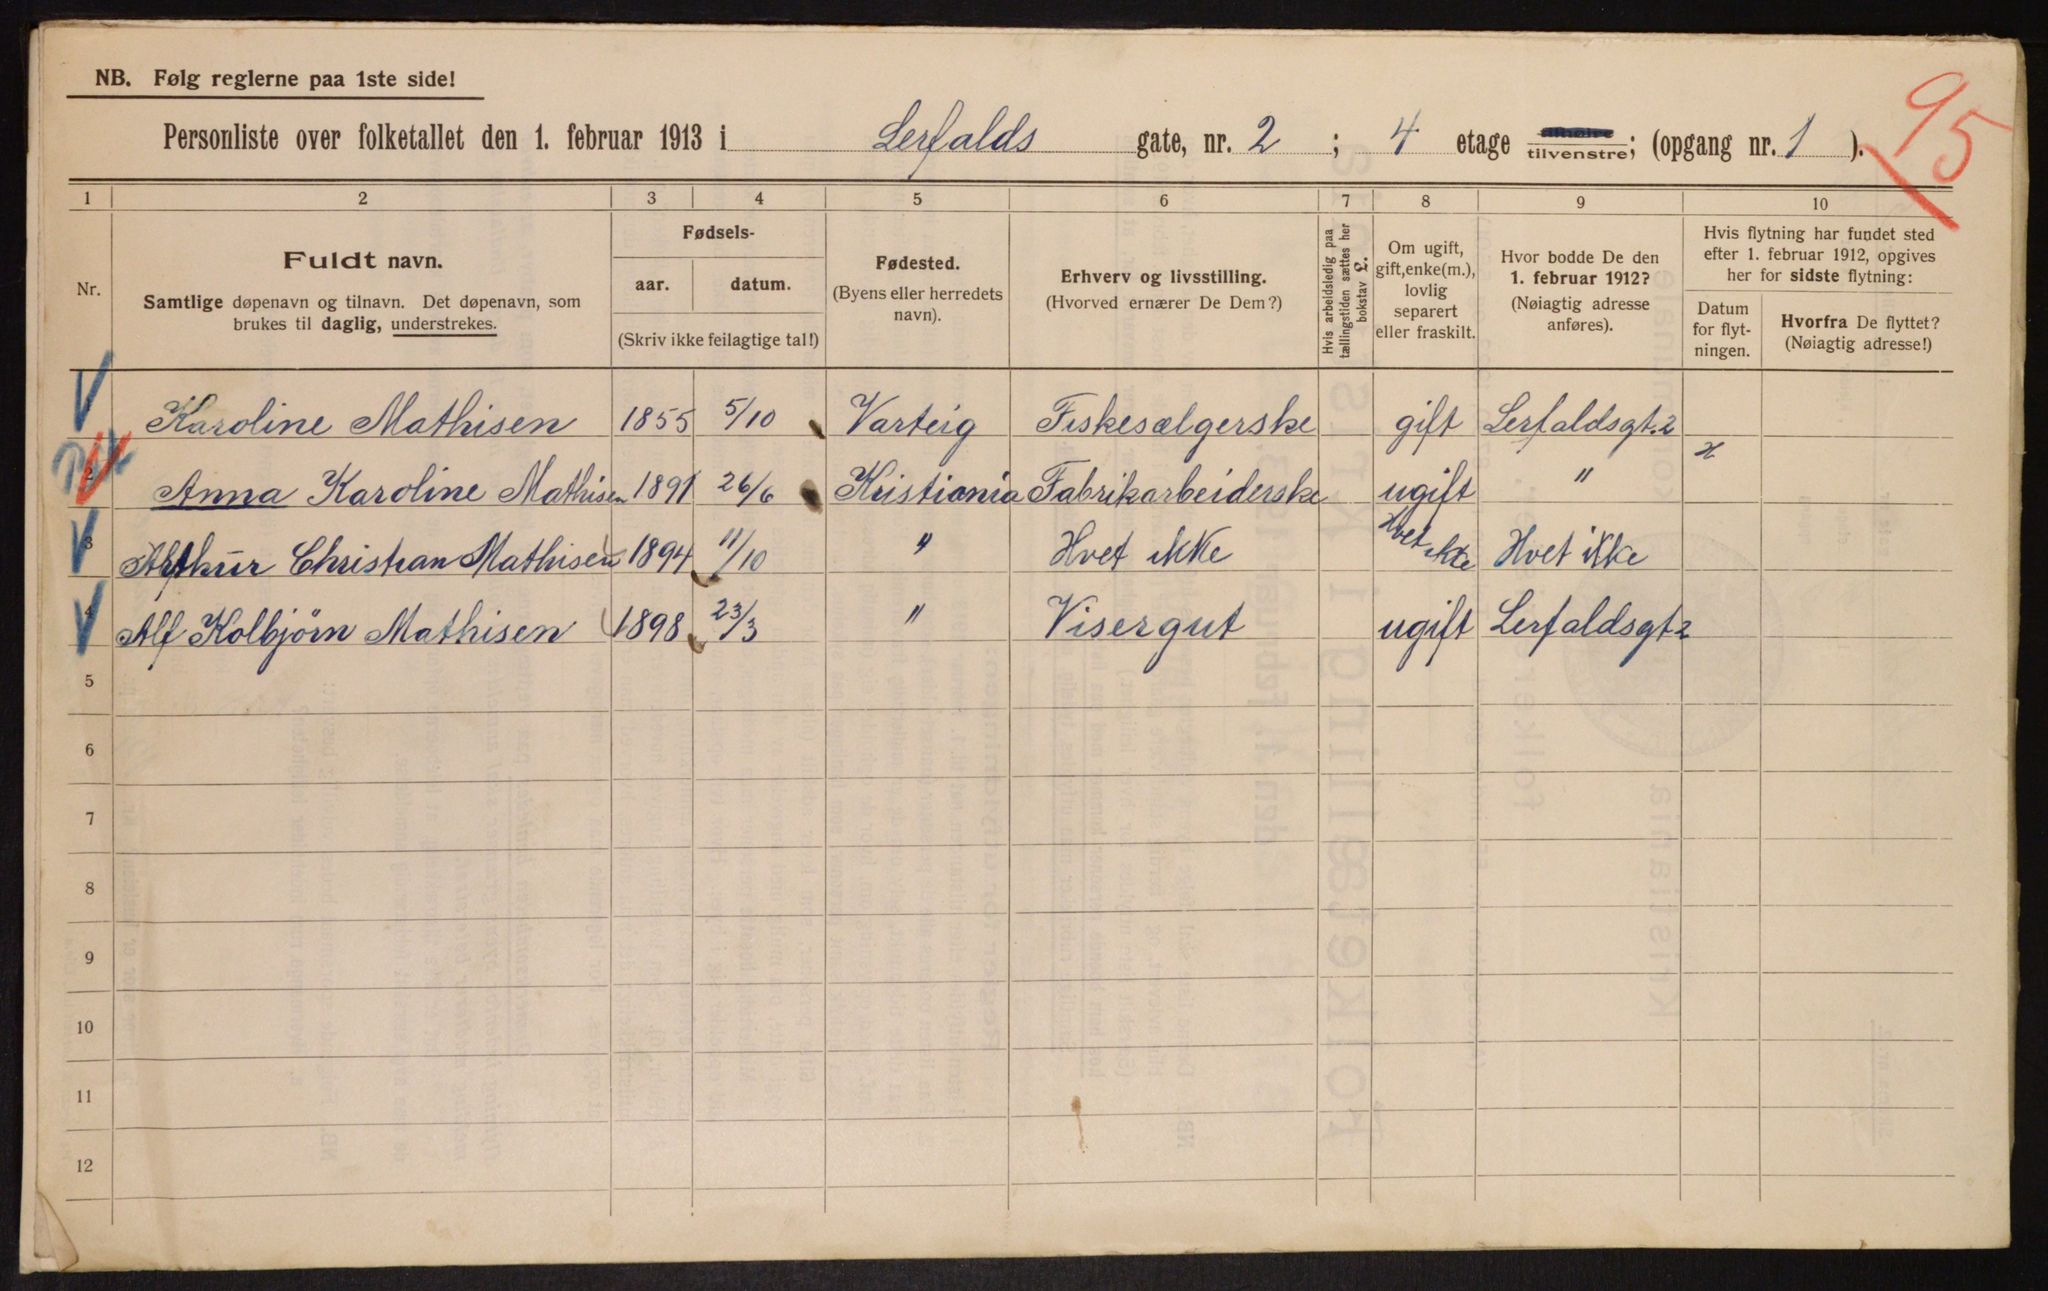 NB. Følg reglerne paa 1ste side!
95
Personliste over folketallet den 1. februar 1913 i Lerfalds gate, nr. 2 ; 4 etage tilvenstre; (opgang nr. 1 ).
1 2 3 4 5 6 7 8 9 10
Nr.
Fuldt navn.
Samtlige døpenavn og tilnavn. Det døpenavn, som
brukes til daglig, understrekes.
Fødsels-
aar. datum.
(Skriv ikke feilagtige tal!)
Fødested.
(Byens eller herredets
navn).
Erhverv og livsstilling.
(Hvorved ernærer De Dem?)
Hvis arbeidsledig paa
tællingstiden sættes her
bokstav L.
Om ugift,
gift, enke(m.),
lovlig
separert
eller fraskilt.
Hvor bodde De den
1. februar 1912?
(Nøiagtig adresse
anføres).
Hvis flytning har fundet sted
efter 1. februar 1912, opgives
her for sidste flytning:
Datum
for flyt-
ningen.
Hvorfra De flyttet?
(Nøiagtig adresse!)
Karoline Mathisen 1855 5/10 Varteig Fiskesælgerske gift Lerfaldsgt. 2
2 Anna Karoline Mathisen 1891 26/6 Kristiania Fabrikarbeiderske ugift " x
3 Arthur Christian Mathisen 1894 11/10 " Hvet ikke Hvet ikke Hvet ikke
4 Alf Kolbjörn Mathisen 1898 23/3 " Visergut ugift Lerfaldsgt 2
5
6
7
8
9
10
11
12